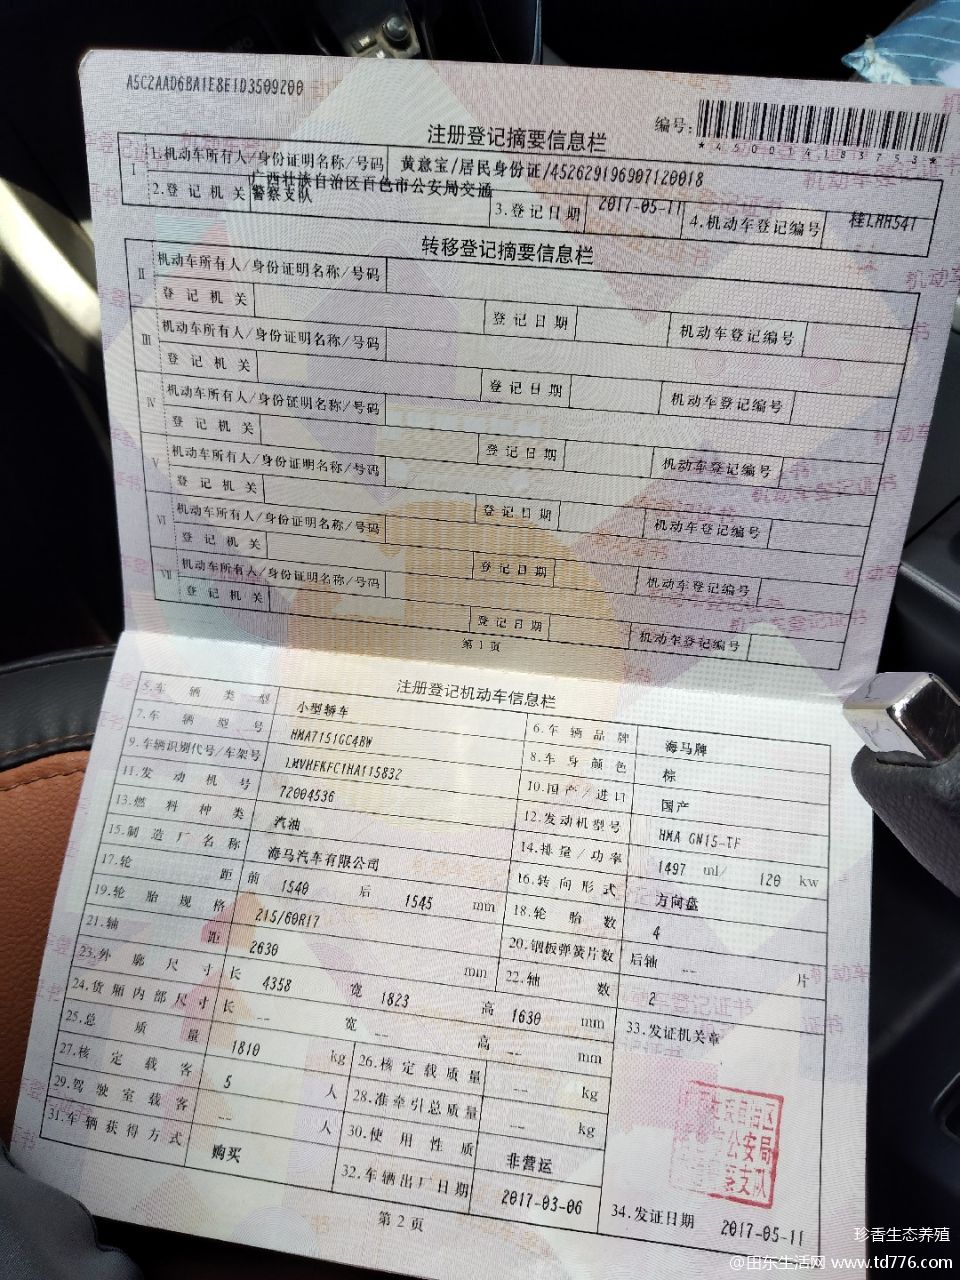 A5C2AAD6BA1E8E1D3509200
编号:
*450014183753*
注册登记摘要信息栏
I 1.机动车所有人/身份证明名称/号码 黄意宝/居民身份证/452629196907120018
2.登记机关 广西壮族自治区百色市公安局交通警察支队 3.登记日期 2017-05-11 4.机动车登记编号 桂LHH541
转移登记摘要信息栏
II 机动车所有人/身份证明名称/号码
登记机关 登记日期 机动车登记编号
III 机动车所有人/身份证明名称/号码
登记机关 登记日期 机动车登记编号
IV 机动车所有人/身份证明名称/号码
登记机关 登记日期 机动车登记编号
V 机动车所有人/身份证明名称/号码
登记机关 登记日期 机动车登记编号
VI 机动车所有人/身份证明名称/号码
登记机关 登记日期 机动车登记编号
VII 机动车所有人/身份证明名称/号码
登记机关 登记日期 机动车登记编号
第1页
注册登记机动车信息栏
5.车辆类型 小型轿车 6.车辆品牌 海马牌
7.车辆型号 HMA7151GC4BW 8.车身颜色 棕
9.车辆识别代号/车架号 LMVHEKFC1HA115832 10.国产/进口 国产
11.发动机号 72004536 12.发动机型号 HMA GN15-TF
13.燃料种类 汽油 14.排量/功率 1497 ml/ 120 kw
15.制造厂名称 海马汽车有限公司 16.转向形式 方向盘
17.轮距 前 1540 后 1545 mm 18.轮胎数 4
19.轮胎规格 215/60R17 20.钢板弹簧片数 后轴 -- 片
21.轴距 2630 mm 22.轴数 2
23.外廓尺寸 长 4358 宽 1823 高 1630 mm 33.发证机关章
24.货厢内部尺寸 长 -- 宽 -- 高 -- mm
25.总质量 1810 kg 26.核定载质量 -- kg
27.核定载客 5 人 28.准牵引总质量 -- kg
29.驾驶室载客 -- 人 30.使用性质 非营运
31.车辆获得方式 购买 32.车辆出厂日期 2017-03-06 34.发证日期 2017-05-11
第2页
珍香生态养殖
@田东生活网 www.td776.com